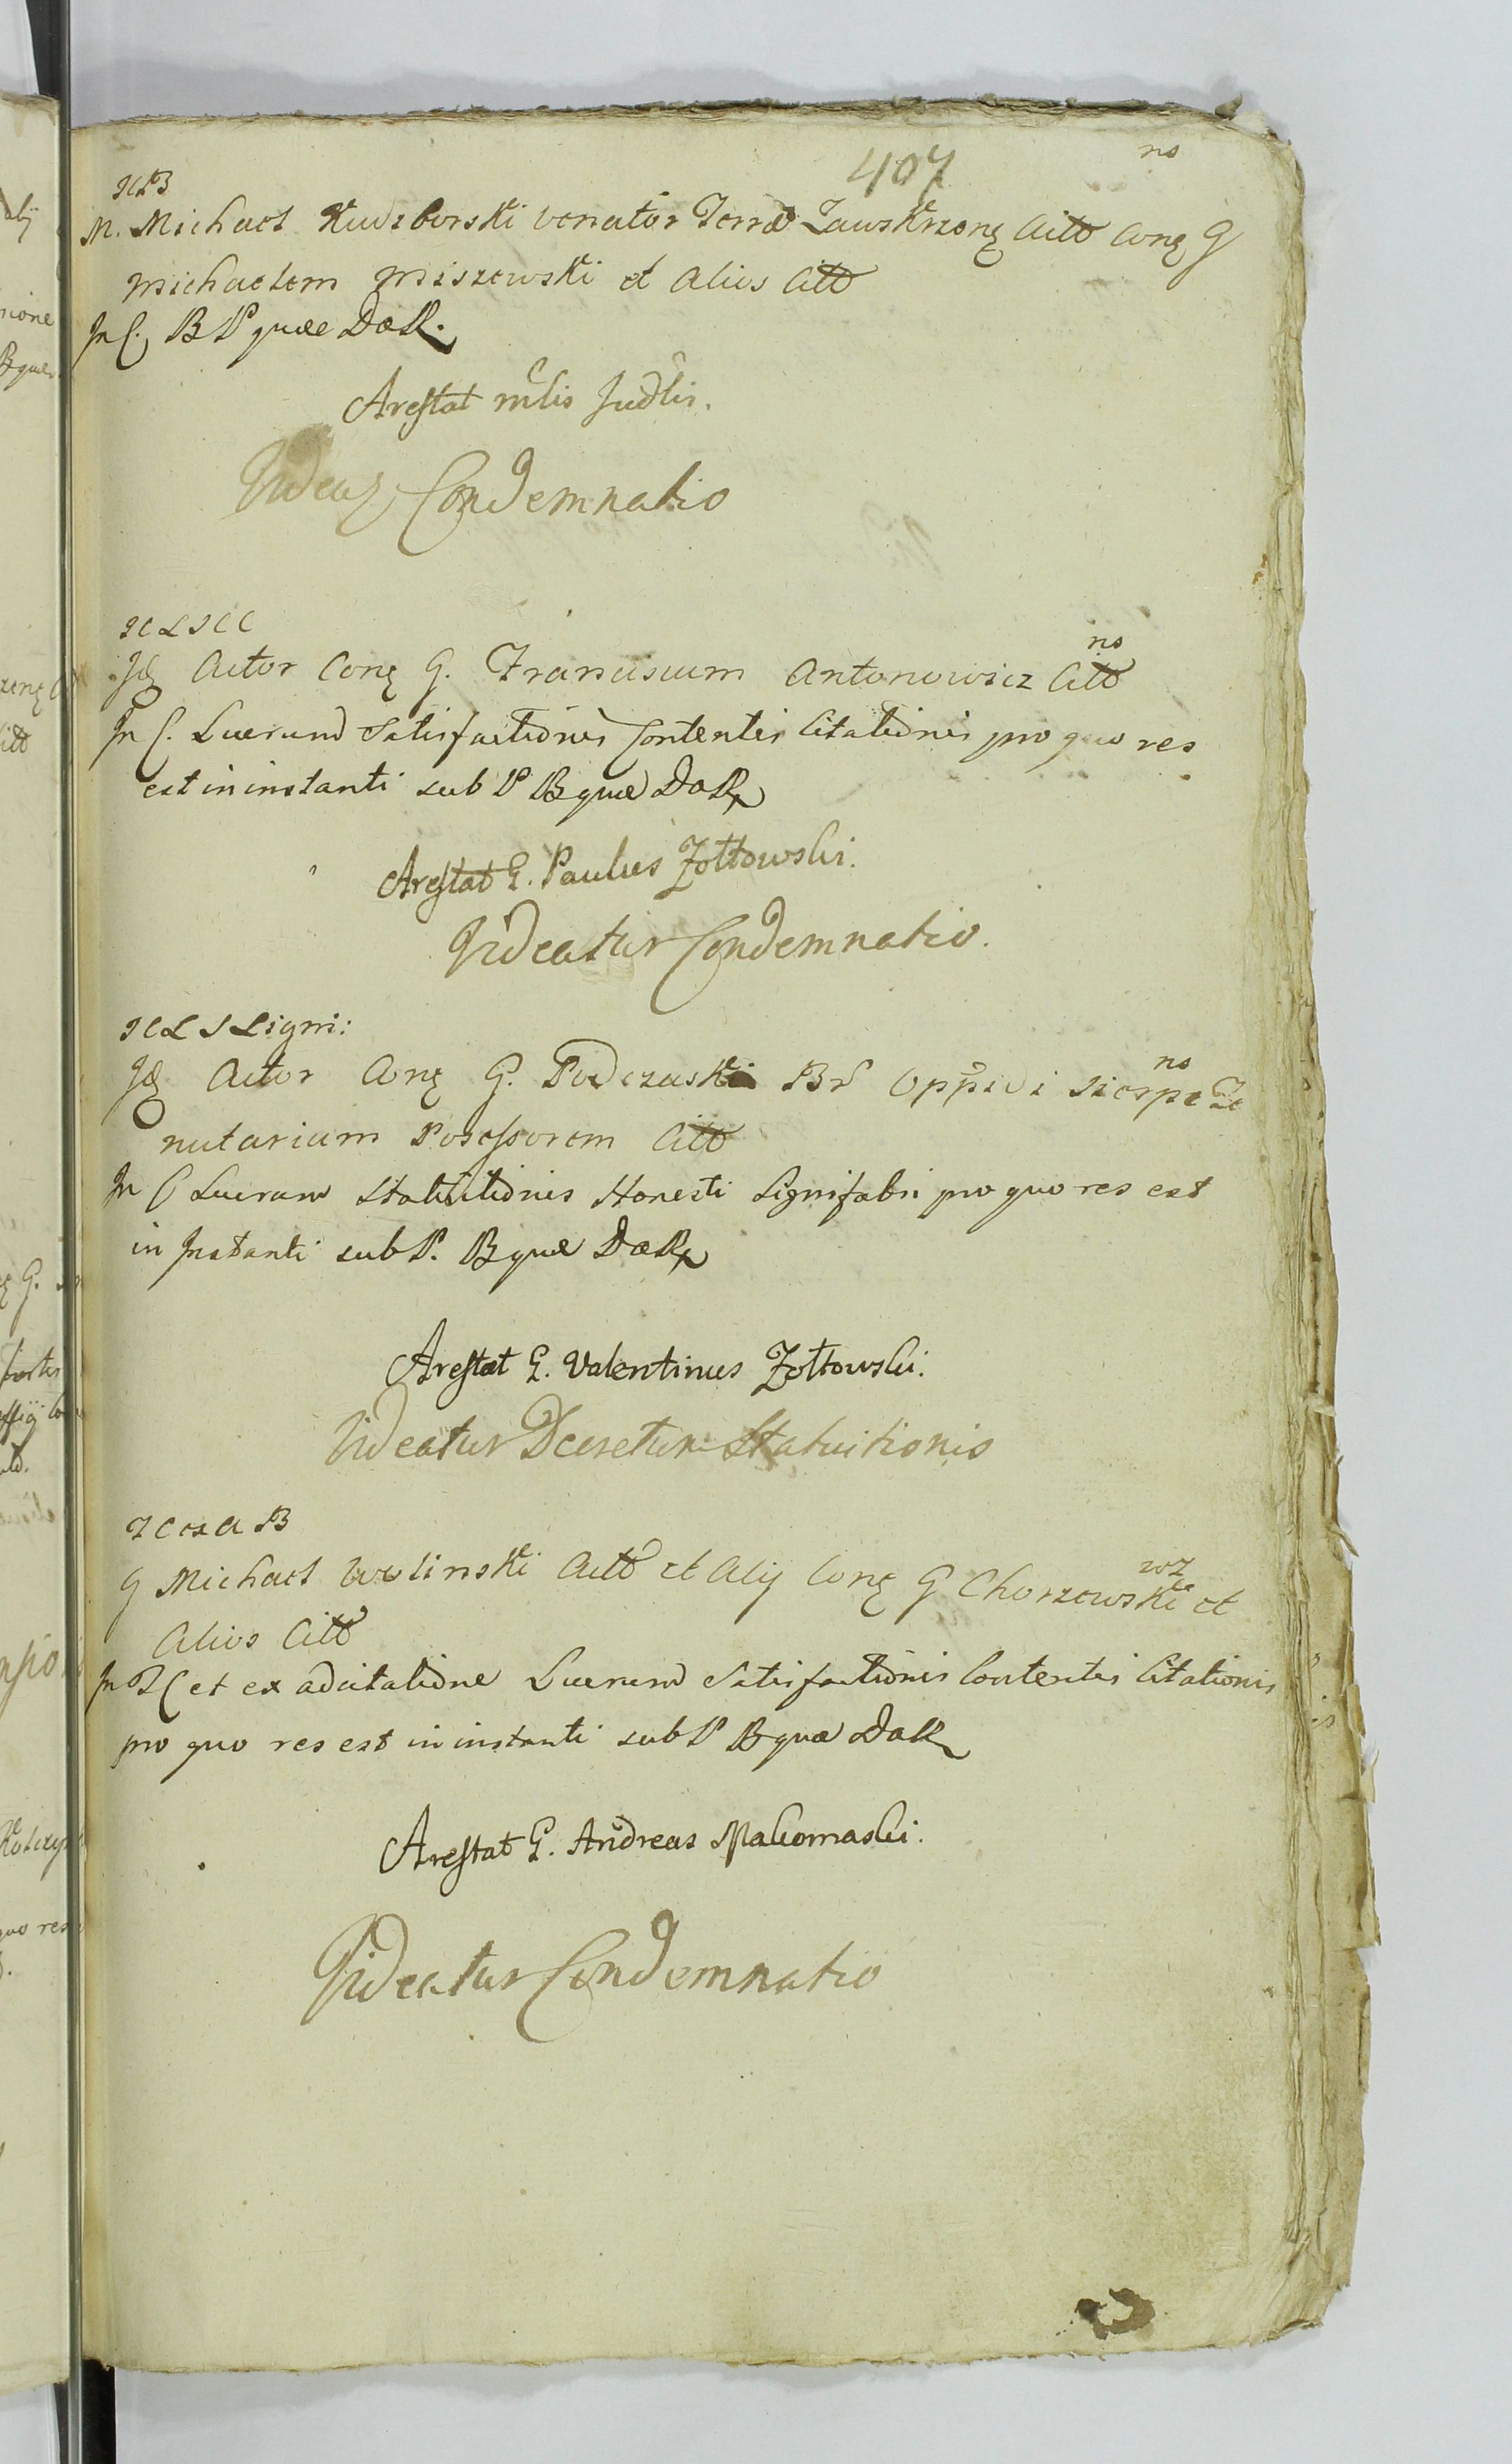 407
no
JCB
M. Michael Kudzborski Venator Terræ Zawskrzong Actō Cong G
Michaelem Miszewski et Alios Cittō
In C. B P quæ DæR.
Arestat mlis Judlis.
Videatz Condemnatio
JCLSCC
no
Jd Actor Cong G. Franciscum Antonowicz Cittō
In C. Lucrand Satisfactionis Contentis Citationis pro quo res
est in instanti sub P B quæ DaR
Arestat G. Paulus Zołtowski.
Videatur Condemnatio.
JCLS Ligni:
no
Jd Actor Cong G. Podczaski Br Oppidi Sierpc Te
nutarium Posessorem Cittō
In C Lucrand Statuitionis Honesti Lignifabri pro quo res est
in Instanti sub P. B quæ DæR
Arestat G. Valentinus Zołtowski.
Videatur Decretum Statuitionis
JC ex a B
wz
G Michael Wolinski Actō et Alij Cong G Chorzewski et
Alios Cittō
In JC et ex adcitatione Lucrand Satisfactionis Contentis Citationis
pro quo res est in instanti sub P B quæ DaR
Arestat G. Andreas Makomaski.
Videatur Condemnatio